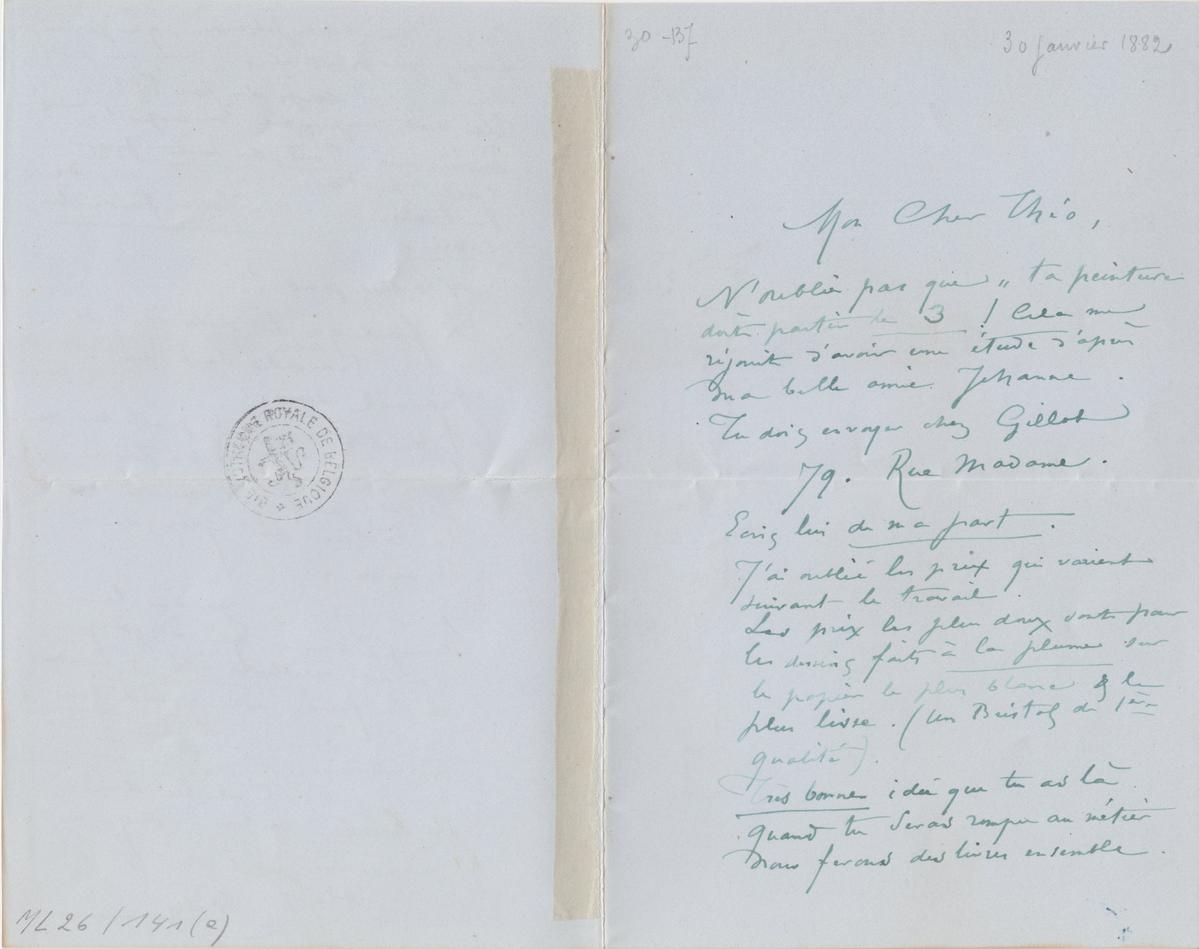 30 - 137
30 janvier 1882
Mon Cher Théo,
N'oublie pas que „ ta peinture
doit partir le 3 ! Cela me
réjouit d'avoir une étude d'après
ma belle amie Jehanne .
Tu dois envoyer chez Gillot
79. Rue Madame .
Ecris lui de ma part .
J'ai oublié les prix qui varient
suivant le travail .
Les prix les plus doux sont pour
les dessins faits à la plume sur
le papier le plus blanc & le
plus lisse . (un Bristol de 1ère
qualité).
Très bonne idée que tu as là .
quand tu seras rompu au métier
nous ferons des livres ensemble .
BIBLIOTHEQUE ROYALE DE BELGIQUE
ML 26 / 141 (a)